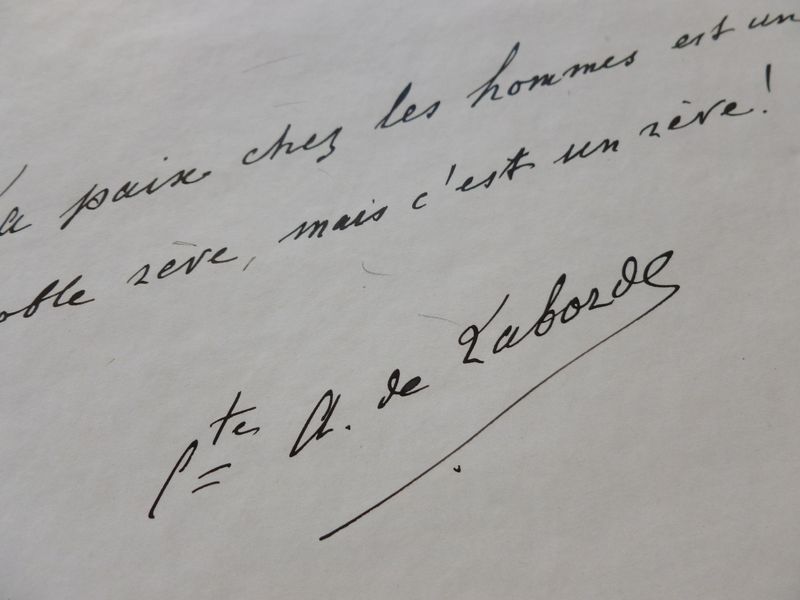 La paix chez les hommes est un
noble rêve, mais c'est un rêve!
Cte A. de Laborde